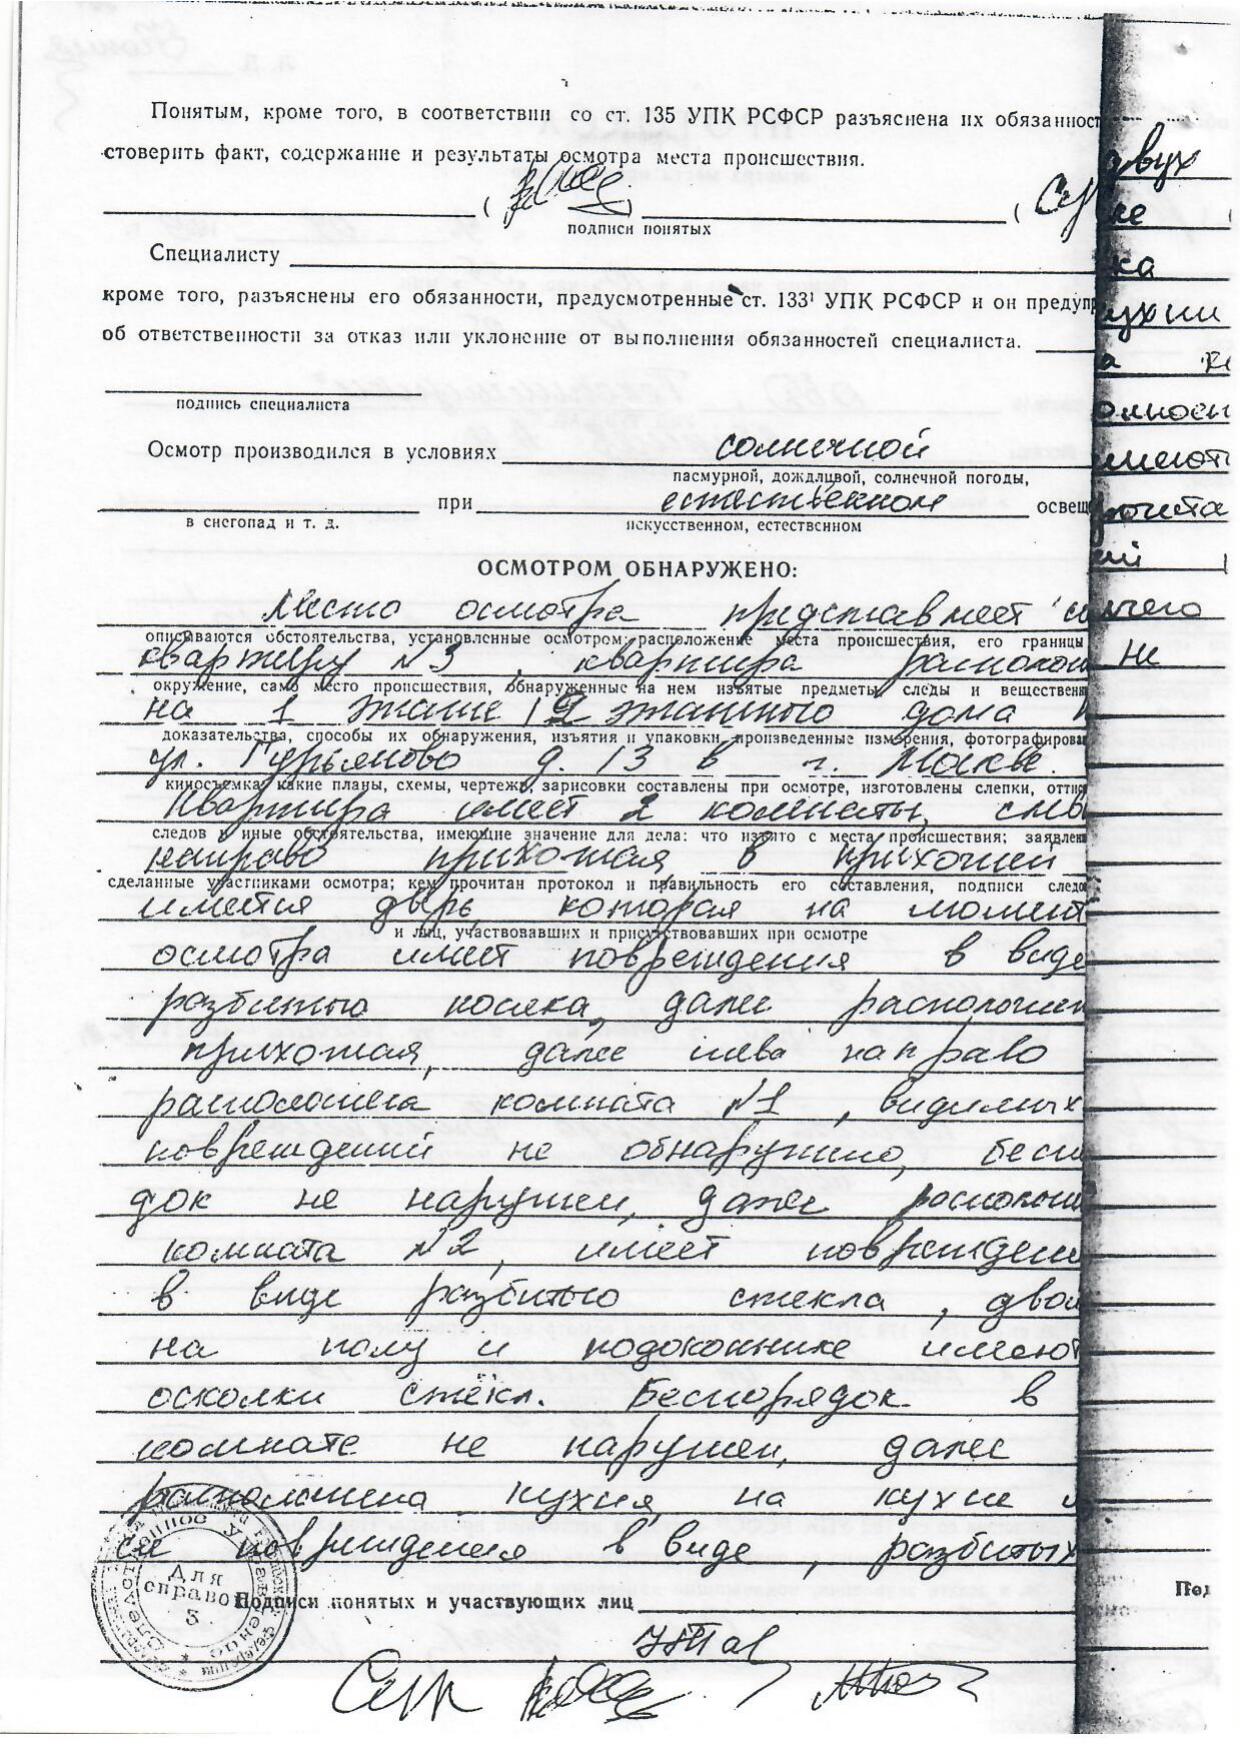 Понятым, кроме того, в соответствии со ст. 135 УПК РСФСР разъяснена их обязанност
стоверить факт, содержание и результаты осмотра места происшествия.
двух
( ) (
подписи понятых
Специалисту
ка
кроме того, разъяснены его обязанности, предусмотренные ст. 133¹ УПК РСФСР и он предупр
кухни
об ответственности за отказ или уклонение от выполнения обязанностей специалиста.
подпись специалиста
Осмотр производился в условиях солнечной
имеют
пасмурной, дождливой, солнечной погоды,
при естественном освещ
в снегопад и т. д. искусственном, естественном
ОСМОТРОМ ОБНАРУЖЕНО:
Место осмотра представляет
описываются обстоятельства, установленные осмотром: расположение места происшествия, его границы
квартиру №3, квартира располож не
окружение, само место происшествия, обнаруженные на нем изъятые предметы, следы и вещественн
на 1 этаже 12 этажного дома
доказательства, способы их обнаружения, изъятия и упаковки, произведенные измерения, фотографирова
ул. Гурьяново д. 13 в г. Москве.
киносъемка, какие планы, схемы, чертежи, зарисовки составлены при осмотре, изготовлены слепки, оттис
Квартира имеет 2 комнаты, слев
следов и иные обстоятельства, имеющие значение для дела: что изъято с места происшествия; заявлен
направо прихожая в прихожей
сделанные участниками осмотра; кем прочитан протокол и правильность его составления, подписи следо
имеется дверь, которая на момент
и лиц, участвовавших и присутствовавших при осмотре
осмотра имеет повреждения в виде
разбитого косяка, далее расположен
прихожая, далее слева направо
расположена комната №1, видимых
повреждений не обнаружено, бесп
док не нарушен, далее располож
комната №2, имеет повреждени
в виде разбитого стекла, двой
на полу и подоконнике имеют
осколки стекл. Беспорядок в
комнате не нарушен, далее
расположена кухня на кухне и
ся повреждения в виде, разбитых
Следственное Управление
Для
справок
3
Подписи понятых и участвующих лиц
Под